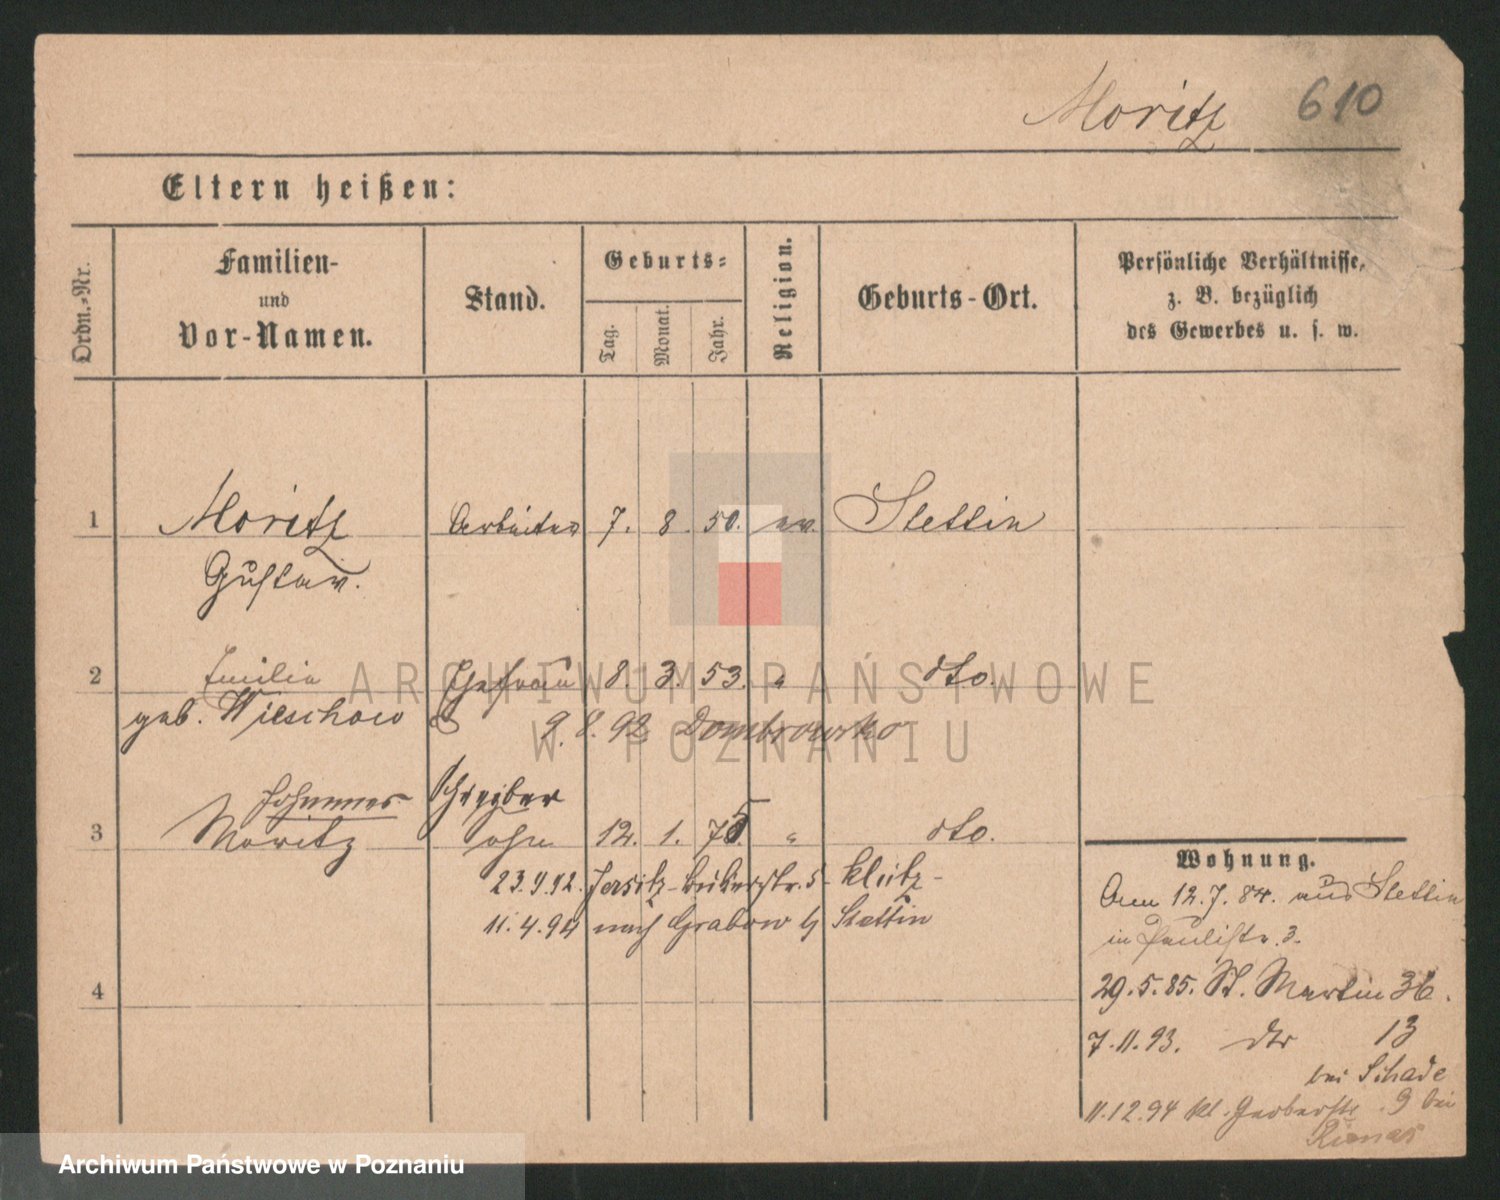 Moritz 610
Eltern heißen:
Ordn.-Nr.
Familien-
und
Vor-Namen.
Stand.
Geburts-
Tag.
Monat.
Jahr.
Religion.
Geburts-Ort.
Persönliche Verhältnisse,
z. B. bezüglich
des Gewerbes u. s. w.
1 Moritz Arbeiter 7. 8. 50. ev. Stettin
Gustav.
2 Emilie Ehefrau 8. 3. 53. " dto.
geb. Wieschow 9. 8. 92 Dombrowsko
Johannes Schreiber
3 Moritz ohn 12. 1. 75. " dto.
23.9.92. Jersitz 5
11.4.94 nach Grabow Stettin
4
Wohnung.
Am 12.7.84. aus Stettin
in Paulistr. 3.
29.5.85. St. Martin 36.
7.11.93. dto 13
bei Schade
11.12.94 kl. Gerberstr. 9 bei
ARCHIWUM PAŃSTWOWE
W POZNANIU
Archiwum Państwowe w Poznaniu